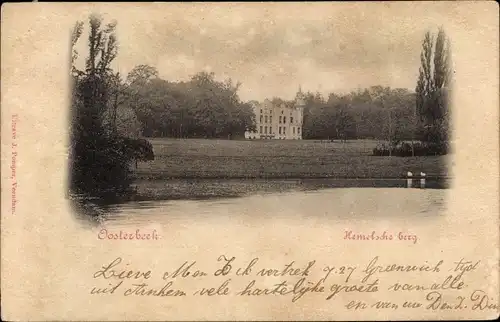 Uitgave J. Pieper, Veendam.
Oosterbeek
Hemelsche berg
Lieve Mon Ik vertrek 9.27 Greenwich tijd
uit Arnhem vele hartelijke groete van alle
en van uwe